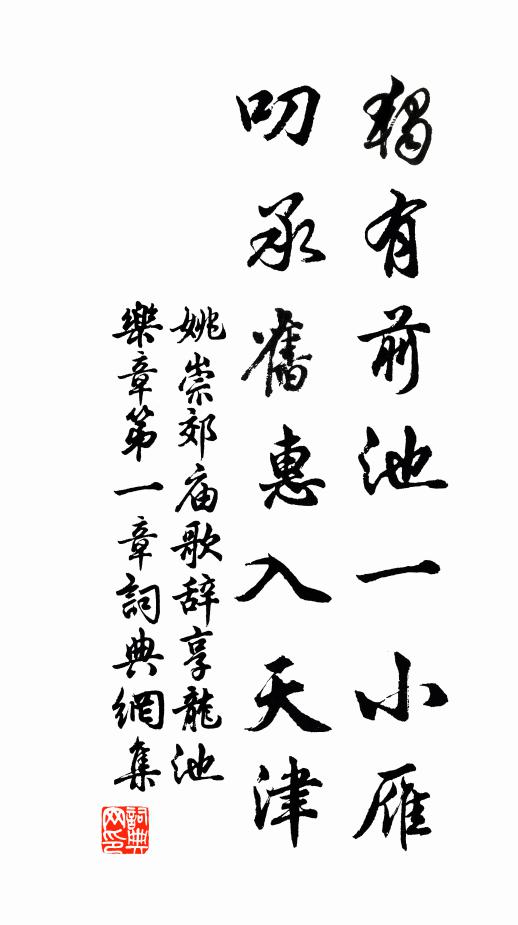 獨有前池一小雁
叨承舊惠入天津
姚崇郊庙歌辞享龍池
樂章第一章詞典網集
詞典
网印